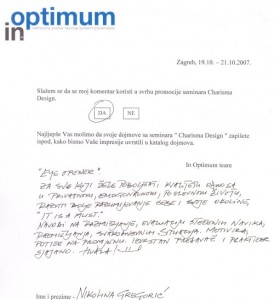 in optimum
Zagreb, 19.10. – 21.10.2007.
Slažem se da se moj komentar koristi u svrhu promocije seminara Charisma
Design.
DA NE
Najljepše Vas molimo da svoje dojmove sa seminara " Charisma Design " zapišete
ispod, kako bismo Vaše impresije uvrstili u katalog dojmova.
In Optimum team
"EYE OPENER"
ZA SVE KOJI ŽELE POBOLJŠATI KVALITETU ODNOSA
U PRIVATNOM, EMOTIVNOM, POSLOVNOM ŽIVOTU,
BOLJE RAZUMIJEVANJE SEBE I SVOJE OKOLINE
"IT IS A MUST"
NAVODI NA RAZMIŠLJANJE, EVALUACIJU STEČENIH NAVIKA,
RAZMIŠLJANJA, SITUACIJA. MOTIVIRA,
POTIČE NA PROMJENU. IZVRSTAN PREDAVAČ I PRAKTIČAR
SJAJNO. HVALA!
Ime i prezime - NIKOLINA GREGORIĆ